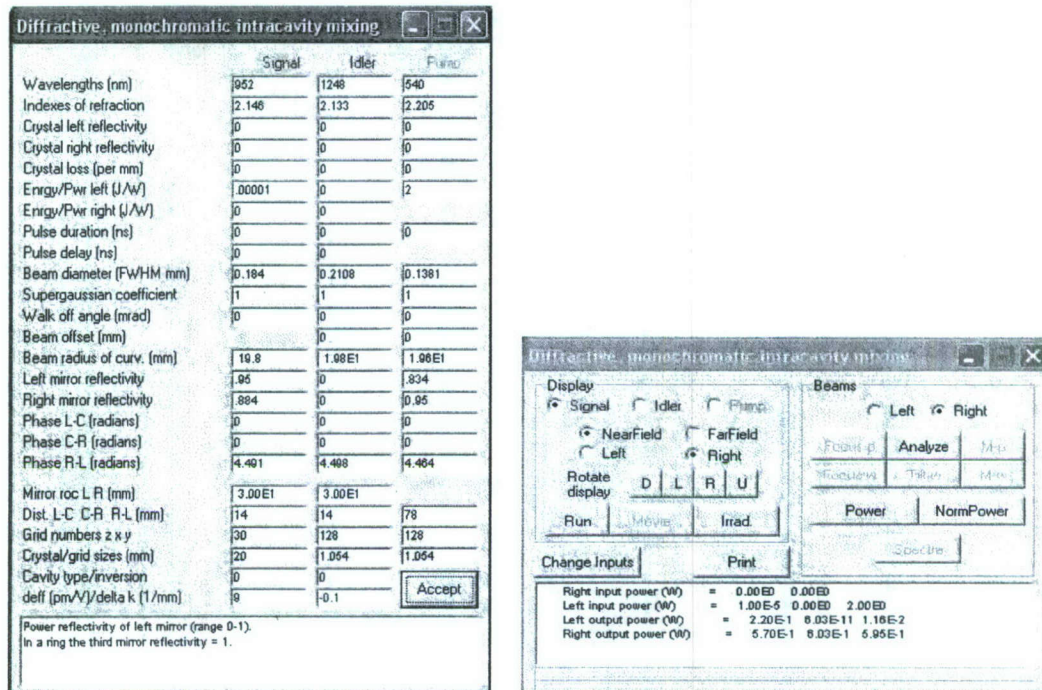 Diffractive, monochromatic intracavity mixing
Signal Idler Pump
Wavelengths (nm) 952 1248 540
Indexes of refraction 2.146 2.133 2.205
Crystal left reflectivity 0 0 0
Crystal right reflectivity 0 0 0
Crystal loss (per mm) 0 0 0
Enrgy/Pwr left (J/W) .00001 0 2
Enrgy/Pwr right (J/W) 0 0
Pulse duration (ns) 0 0 0
Pulse delay (ns) 0 0
Beam diameter (FWHM mm) 0.184 0.2108 0.1381
Supergaussian coefficient 1 1 1
Walk off angle (mrad) 0 0 0
Beam offset (mm) 0 0
Beam radius of curv. (mm) 19.8 1.98E1 1.96E1
Left mirror reflectivity .95 0 .834
Right mirror reflectivity .884 0 0.95
Phase L-C (radians) 0 0 0
Phase C-R (radians) 0 0 0
Phase R-L (radians) 4.491 4.498 4.464
Mirror roc L R (mm) 3.00E1 3.00E1
Dist. L-C C-R R-L (mm) 14 14 78
Grid numbers z x y 30 128 128
Crystal/grid sizes (mm) 20 1.054 1.054
Cavity type/inversion 0 0
deff (pm/V)/delta k (1/mm) 9 -0.1
Accept
Power reflectivity of left mirror (range 0-1).
In a ring the third mirror reflectivity = 1.
Diffractive, monochromatic intracavity mixing
Display
Signal Idler Pump
NearField FarField
Left Right
Rotate display D L R U
Run Movie Irrad.
Beams
Left Right
Analyze
Power NormPower
Spectra
Change Inputs Print
Right input power (W) = 0.00E0 0.00E0
Left input power (W) = 1.00E-5 0.00E0 2.00E0
Left output power (W) = 2.20E-1 6.03E-11 1.16E-2
Right output power (W) = 5.70E-1 6.03E-1 5.95E-1